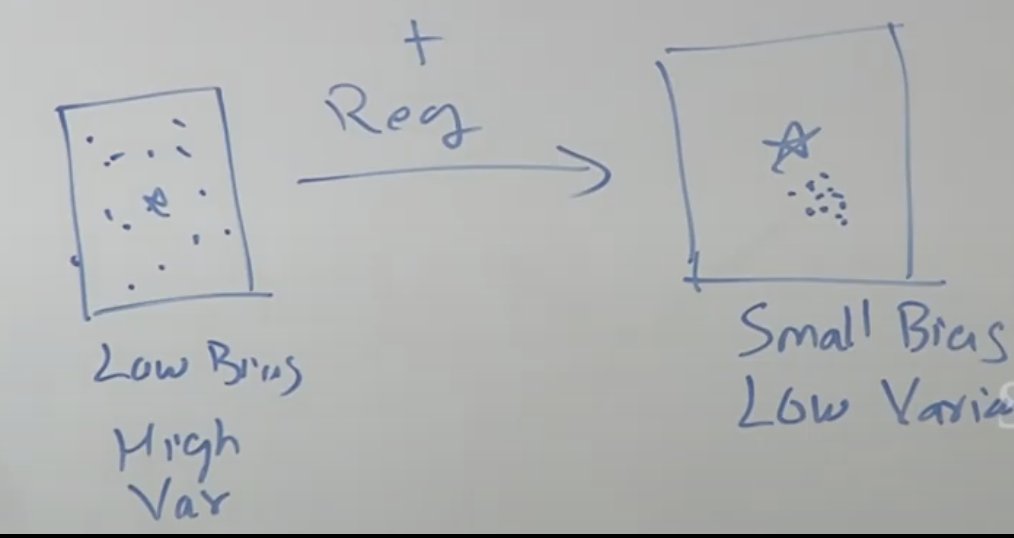 +
Reg
Low Bias
High
Var
Small Bias
Low Varia